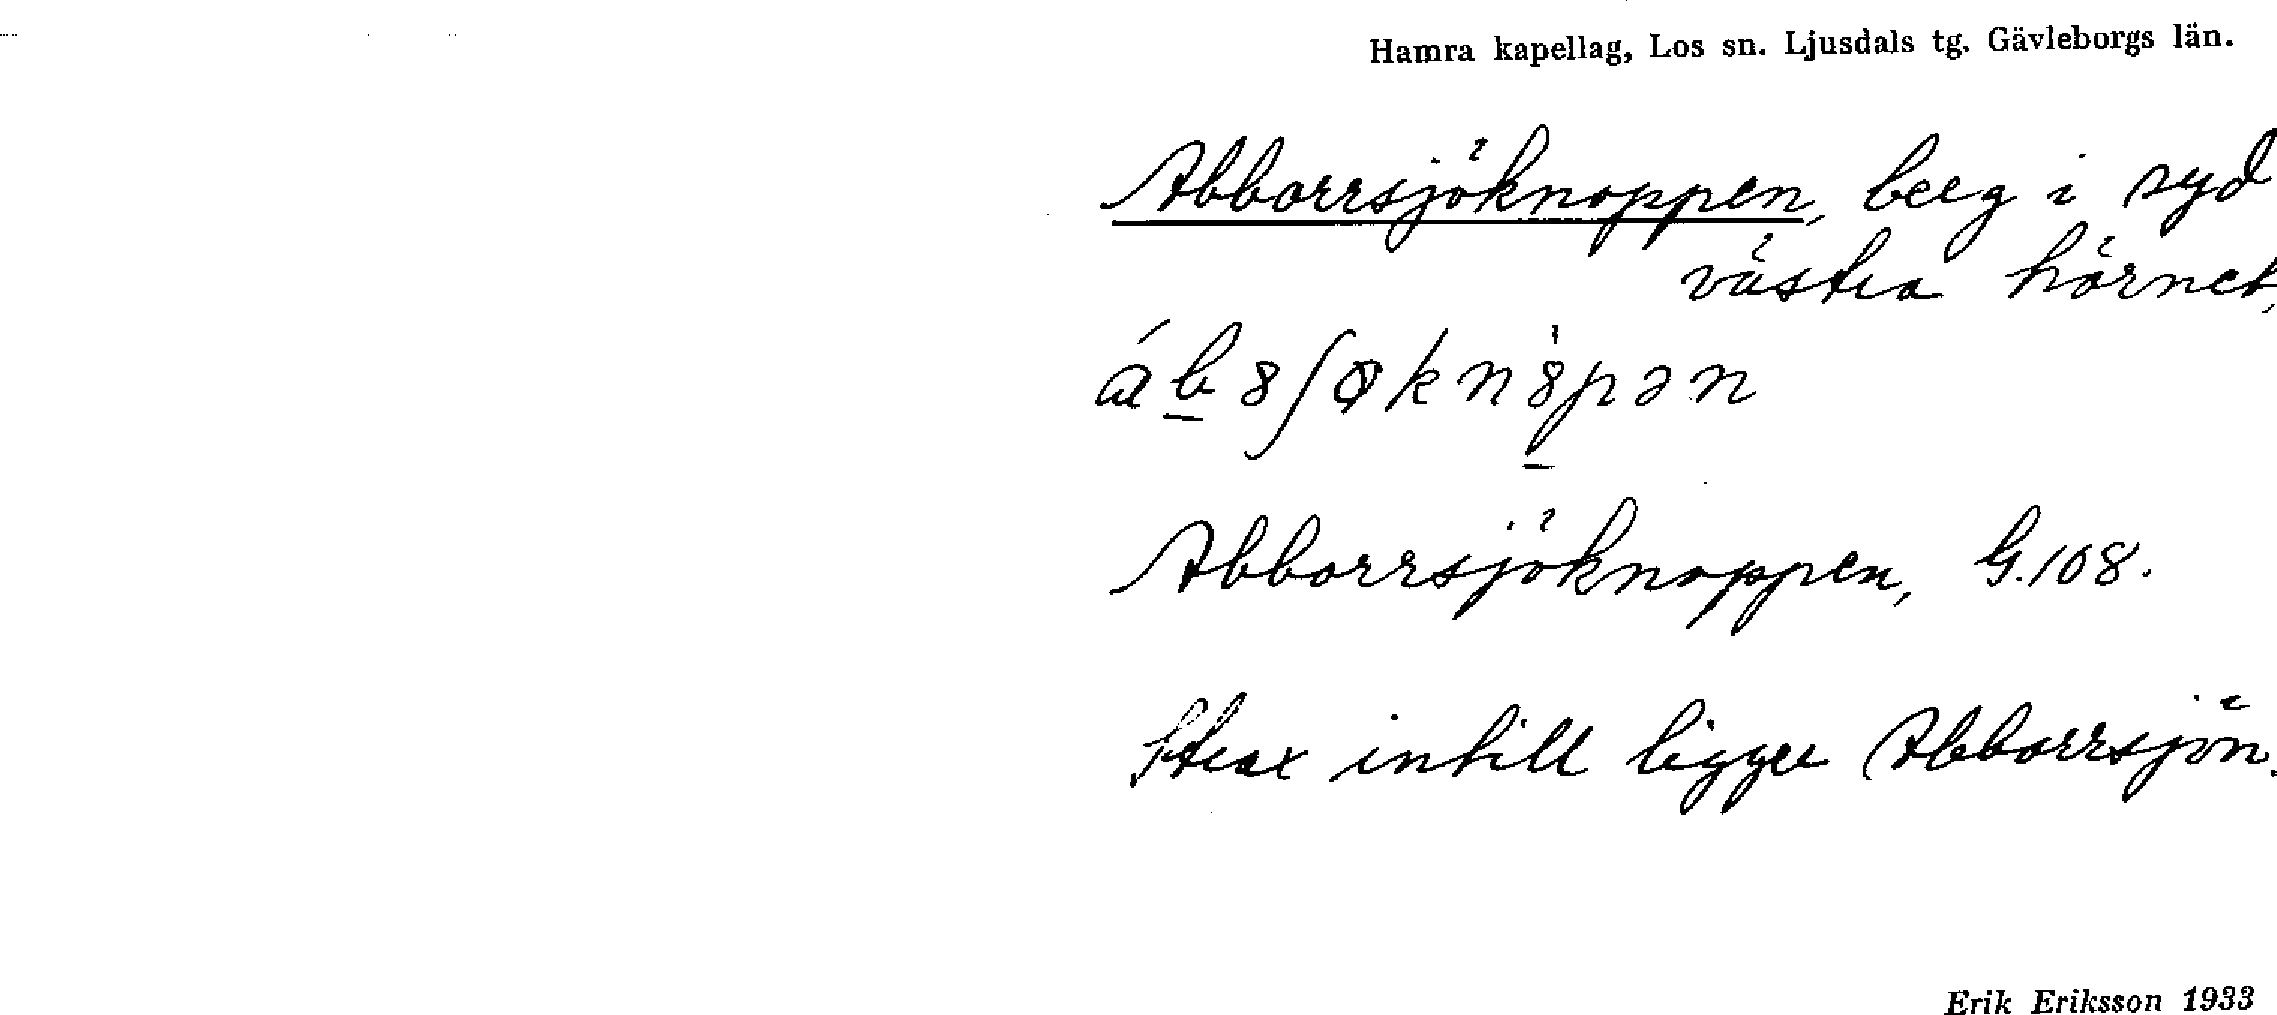 Hamra kapellag, Los sn. Ljusdals tg. Gävleborgs län.
Abborrsjöknoppen, berg i syd
västra hörnet.
áb̲8ʃøkn8̀p̲ən
Abborrsjöknoppen, G.108.
Strax intill ligger Abborrsjön.
Erik Eriksson 1933